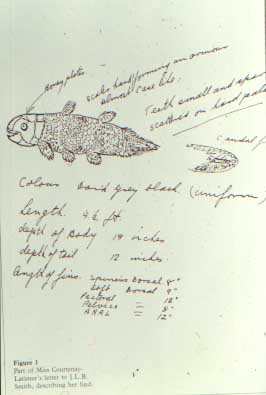 Boney plates
scales hard forming an armour
almost case like.
Teeth small and
scattered on hard
Caudal
Colour Dark Grey black (uniform)
Length. 4½ ft.
depth of Body 18 inches
depth of tail 12 inches.
Length of fins. Spineus Dorsal 8"
Soft Dorsal 9"
Pectoral 12"
Pelvics = 8"
ANAL = 12"
Figure 1
Part of Miss Courtenay-
Latimer's letter to J.L.B.
Smith, describing her find.